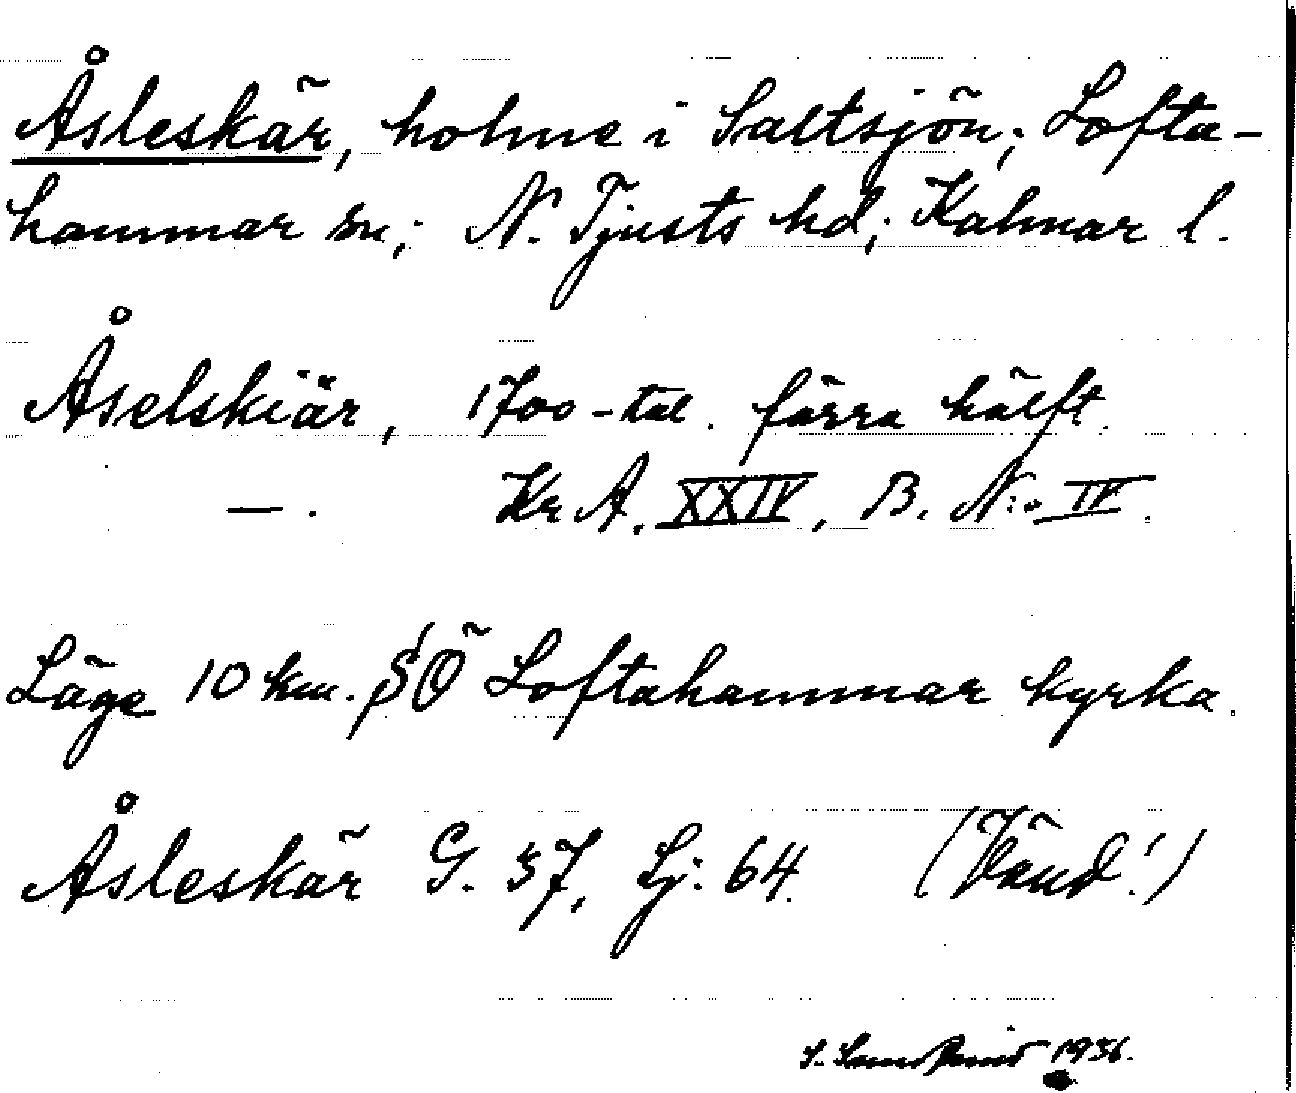 Åsleskär, holme i Saltsjön; Lofta-
hammar sn; N. Tjusts hd; Kalmar l.
Åselskiär, 1700-tal. förra hälft.
—. Kr A. XXIV, B. N:o IV.
Läge 10 km. SÖ Loftahammar kyrka.
Åsleskär G. 57, Lj: 64. (Vänd!)
1936.